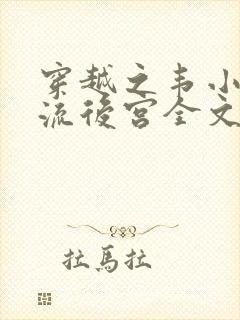 穿越之韦小
流後宫全文
拉馬拉